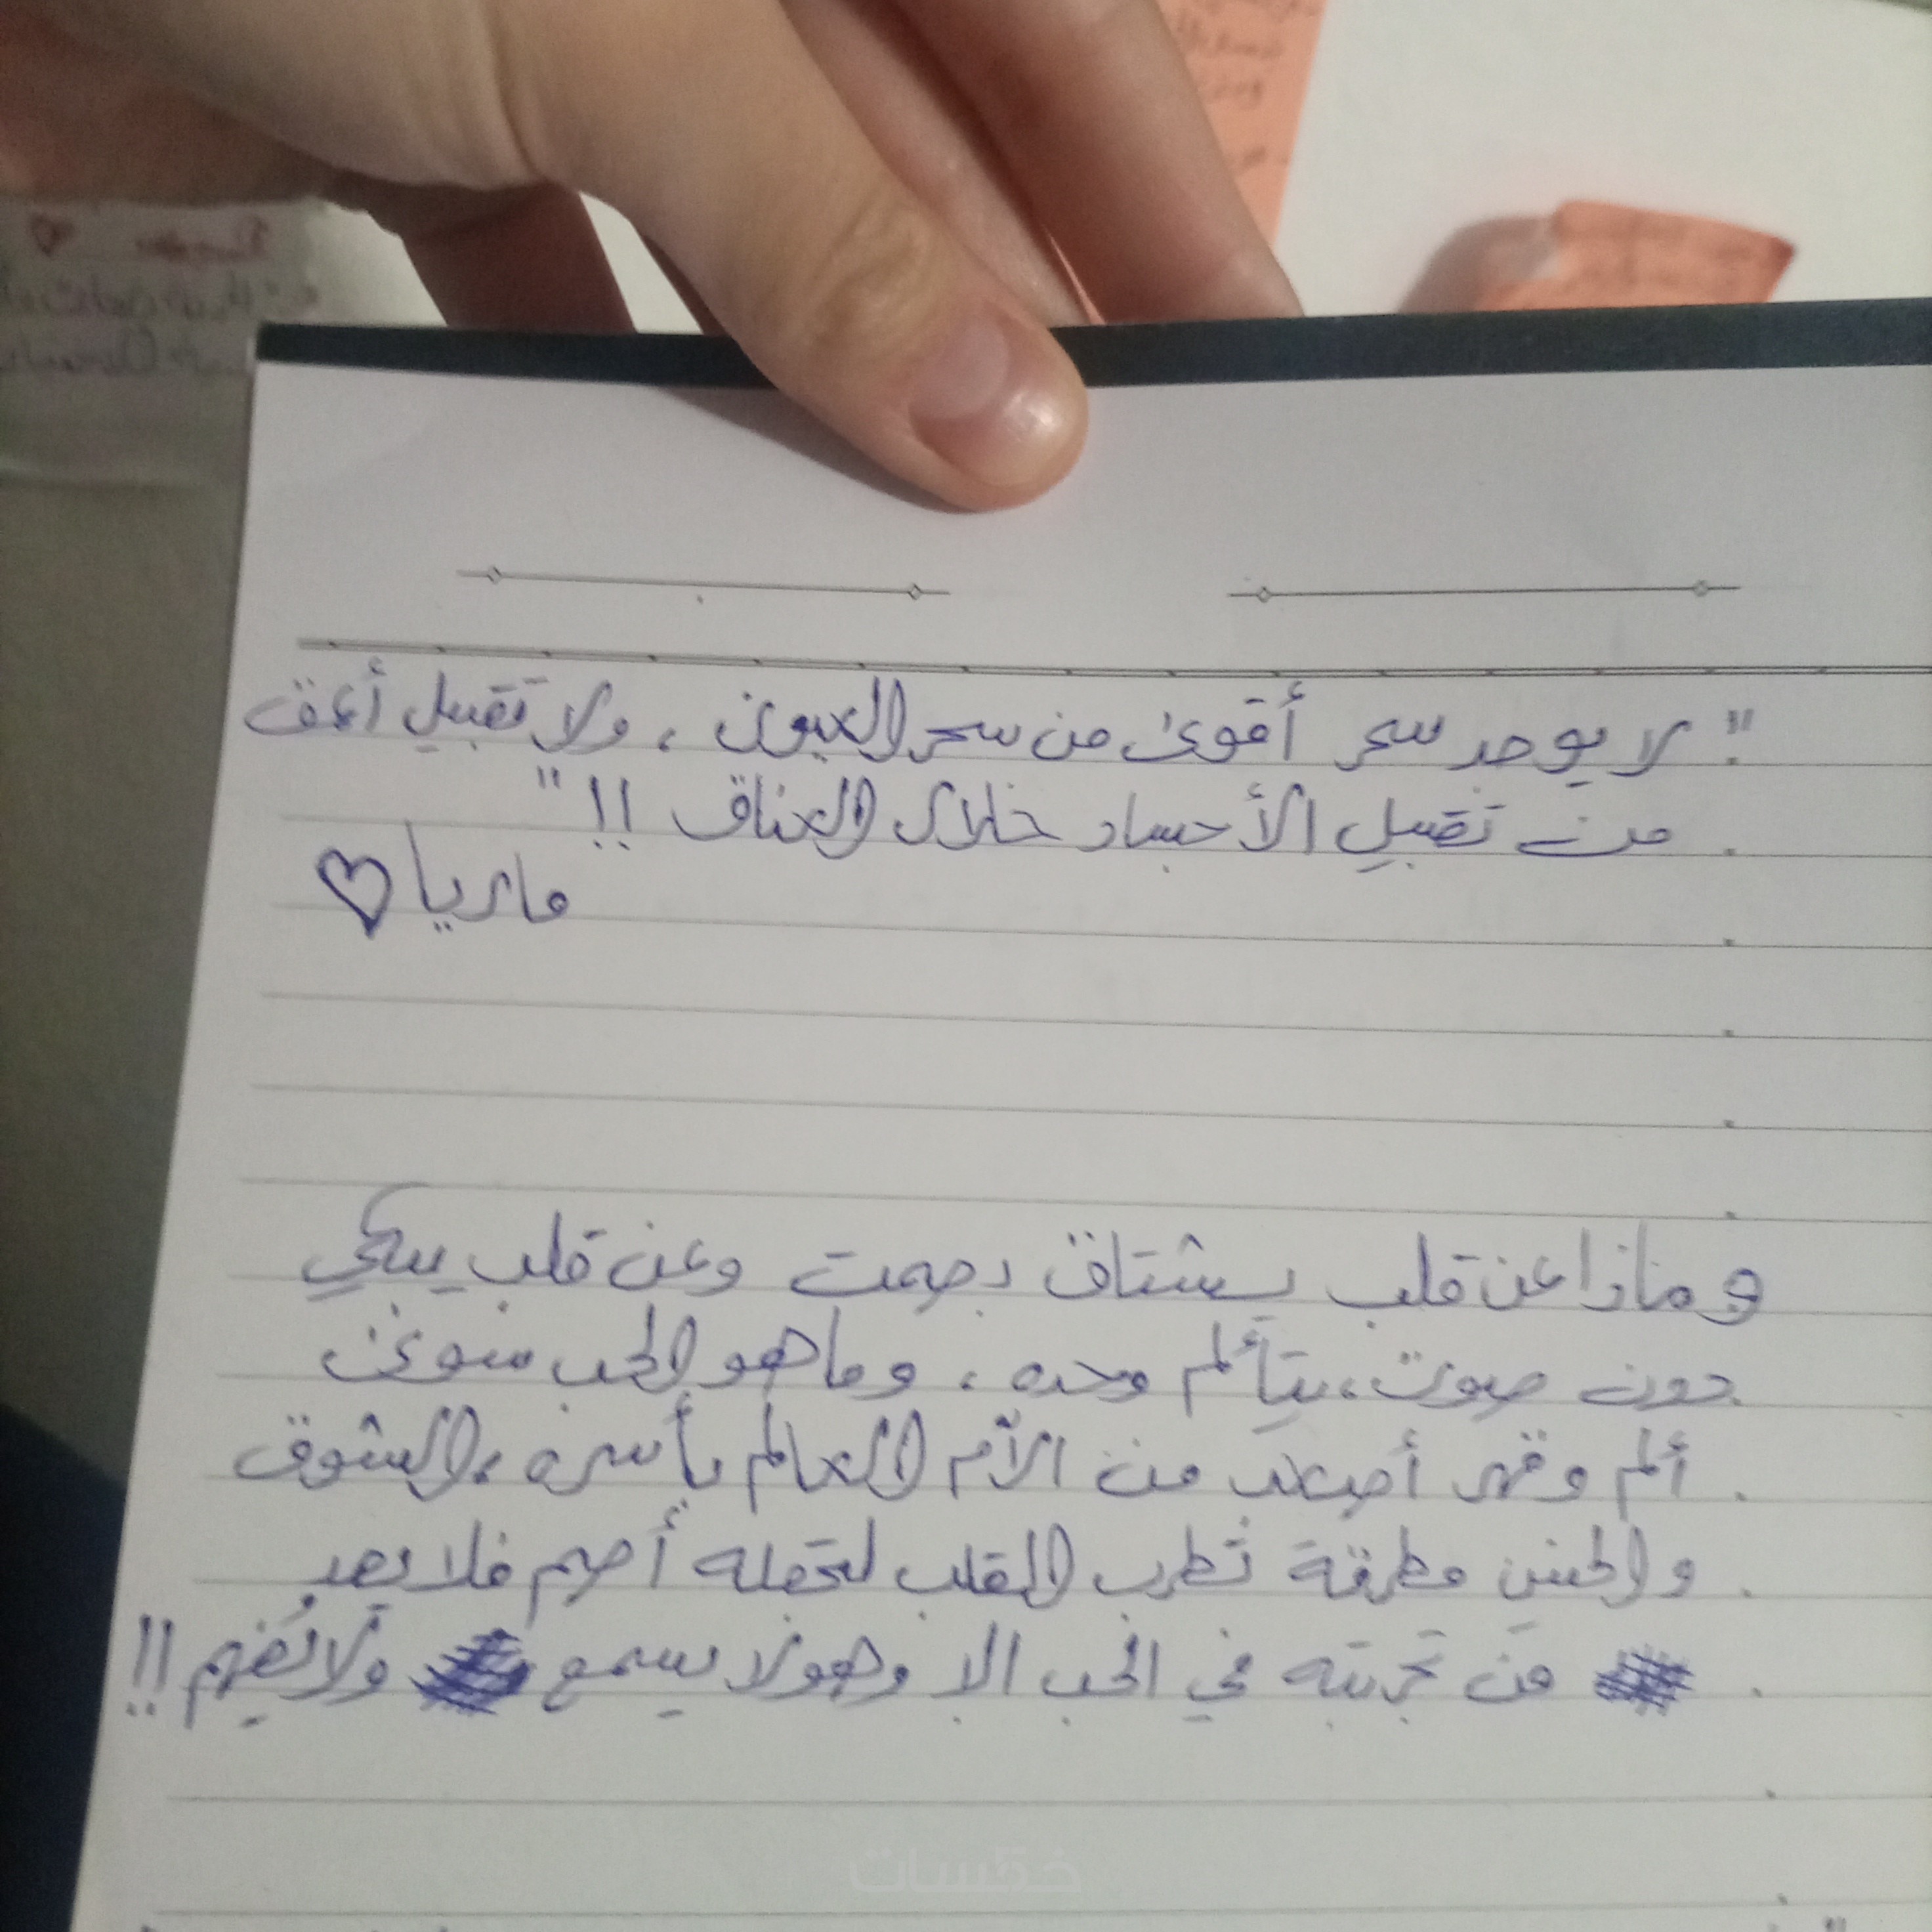 " لا يوجد سحر أقوى من سحر العيون ، ولا تقبيل أعمق
من تقبيل الأجساد خلال العناق !! "
ماريا ♡
وماذا عن قلب يشتاق بصمت وعن قلب يبكي
دون صوت، يتألم وحده ، وما هو الحب سوى
ألم وقهر أصعب من الآم العالم بأسره ، الشوق
و الحنين مطرقة تطرب القلب لتجعله أصم فلا يعد
من تجربته في الحب الا وهو لا يسمع ولا يفهم !!
خمسات